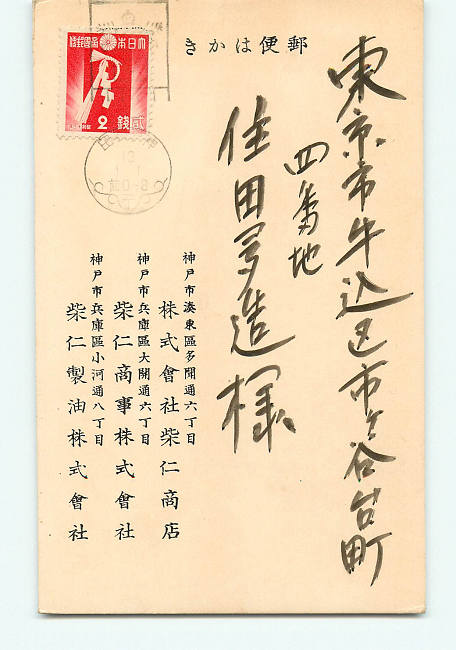 郵便はかき
大日本帝國郵便
貳錢 2
神戸
13
1.1
前0-8
東京市牛込区市ヶ谷台町
四番地
住田多造様
神戸市湊東區多聞通六丁目
株式會社柴仁商店
神戸市兵庫區大開通六丁目
柴仁商事株式會社
神戸市兵庫區小河通八丁目
柴仁製油株式會社